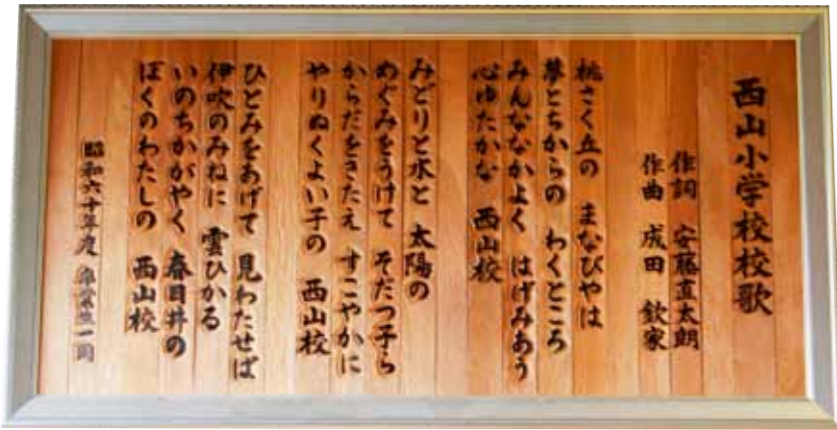 西山小学校校歌
作詞 安藤直太朗
作曲 成田 欽家
桃さく丘の まなびやは
夢とちからの わくところ
みんななかよく はげみあう
心ゆたかな 西山校
みどりと水と 太陽の
めぐみをうけて そだつ子ら
からだをきたえ すこやかに
やりぬくよい子の 西山校
ひとみをあげて 見わたせば
伊吹のみねに 雲ひかる
いのちかがやく 春日井の
ぼくのわたしの 西山校
昭和六十年度 卒業生一同